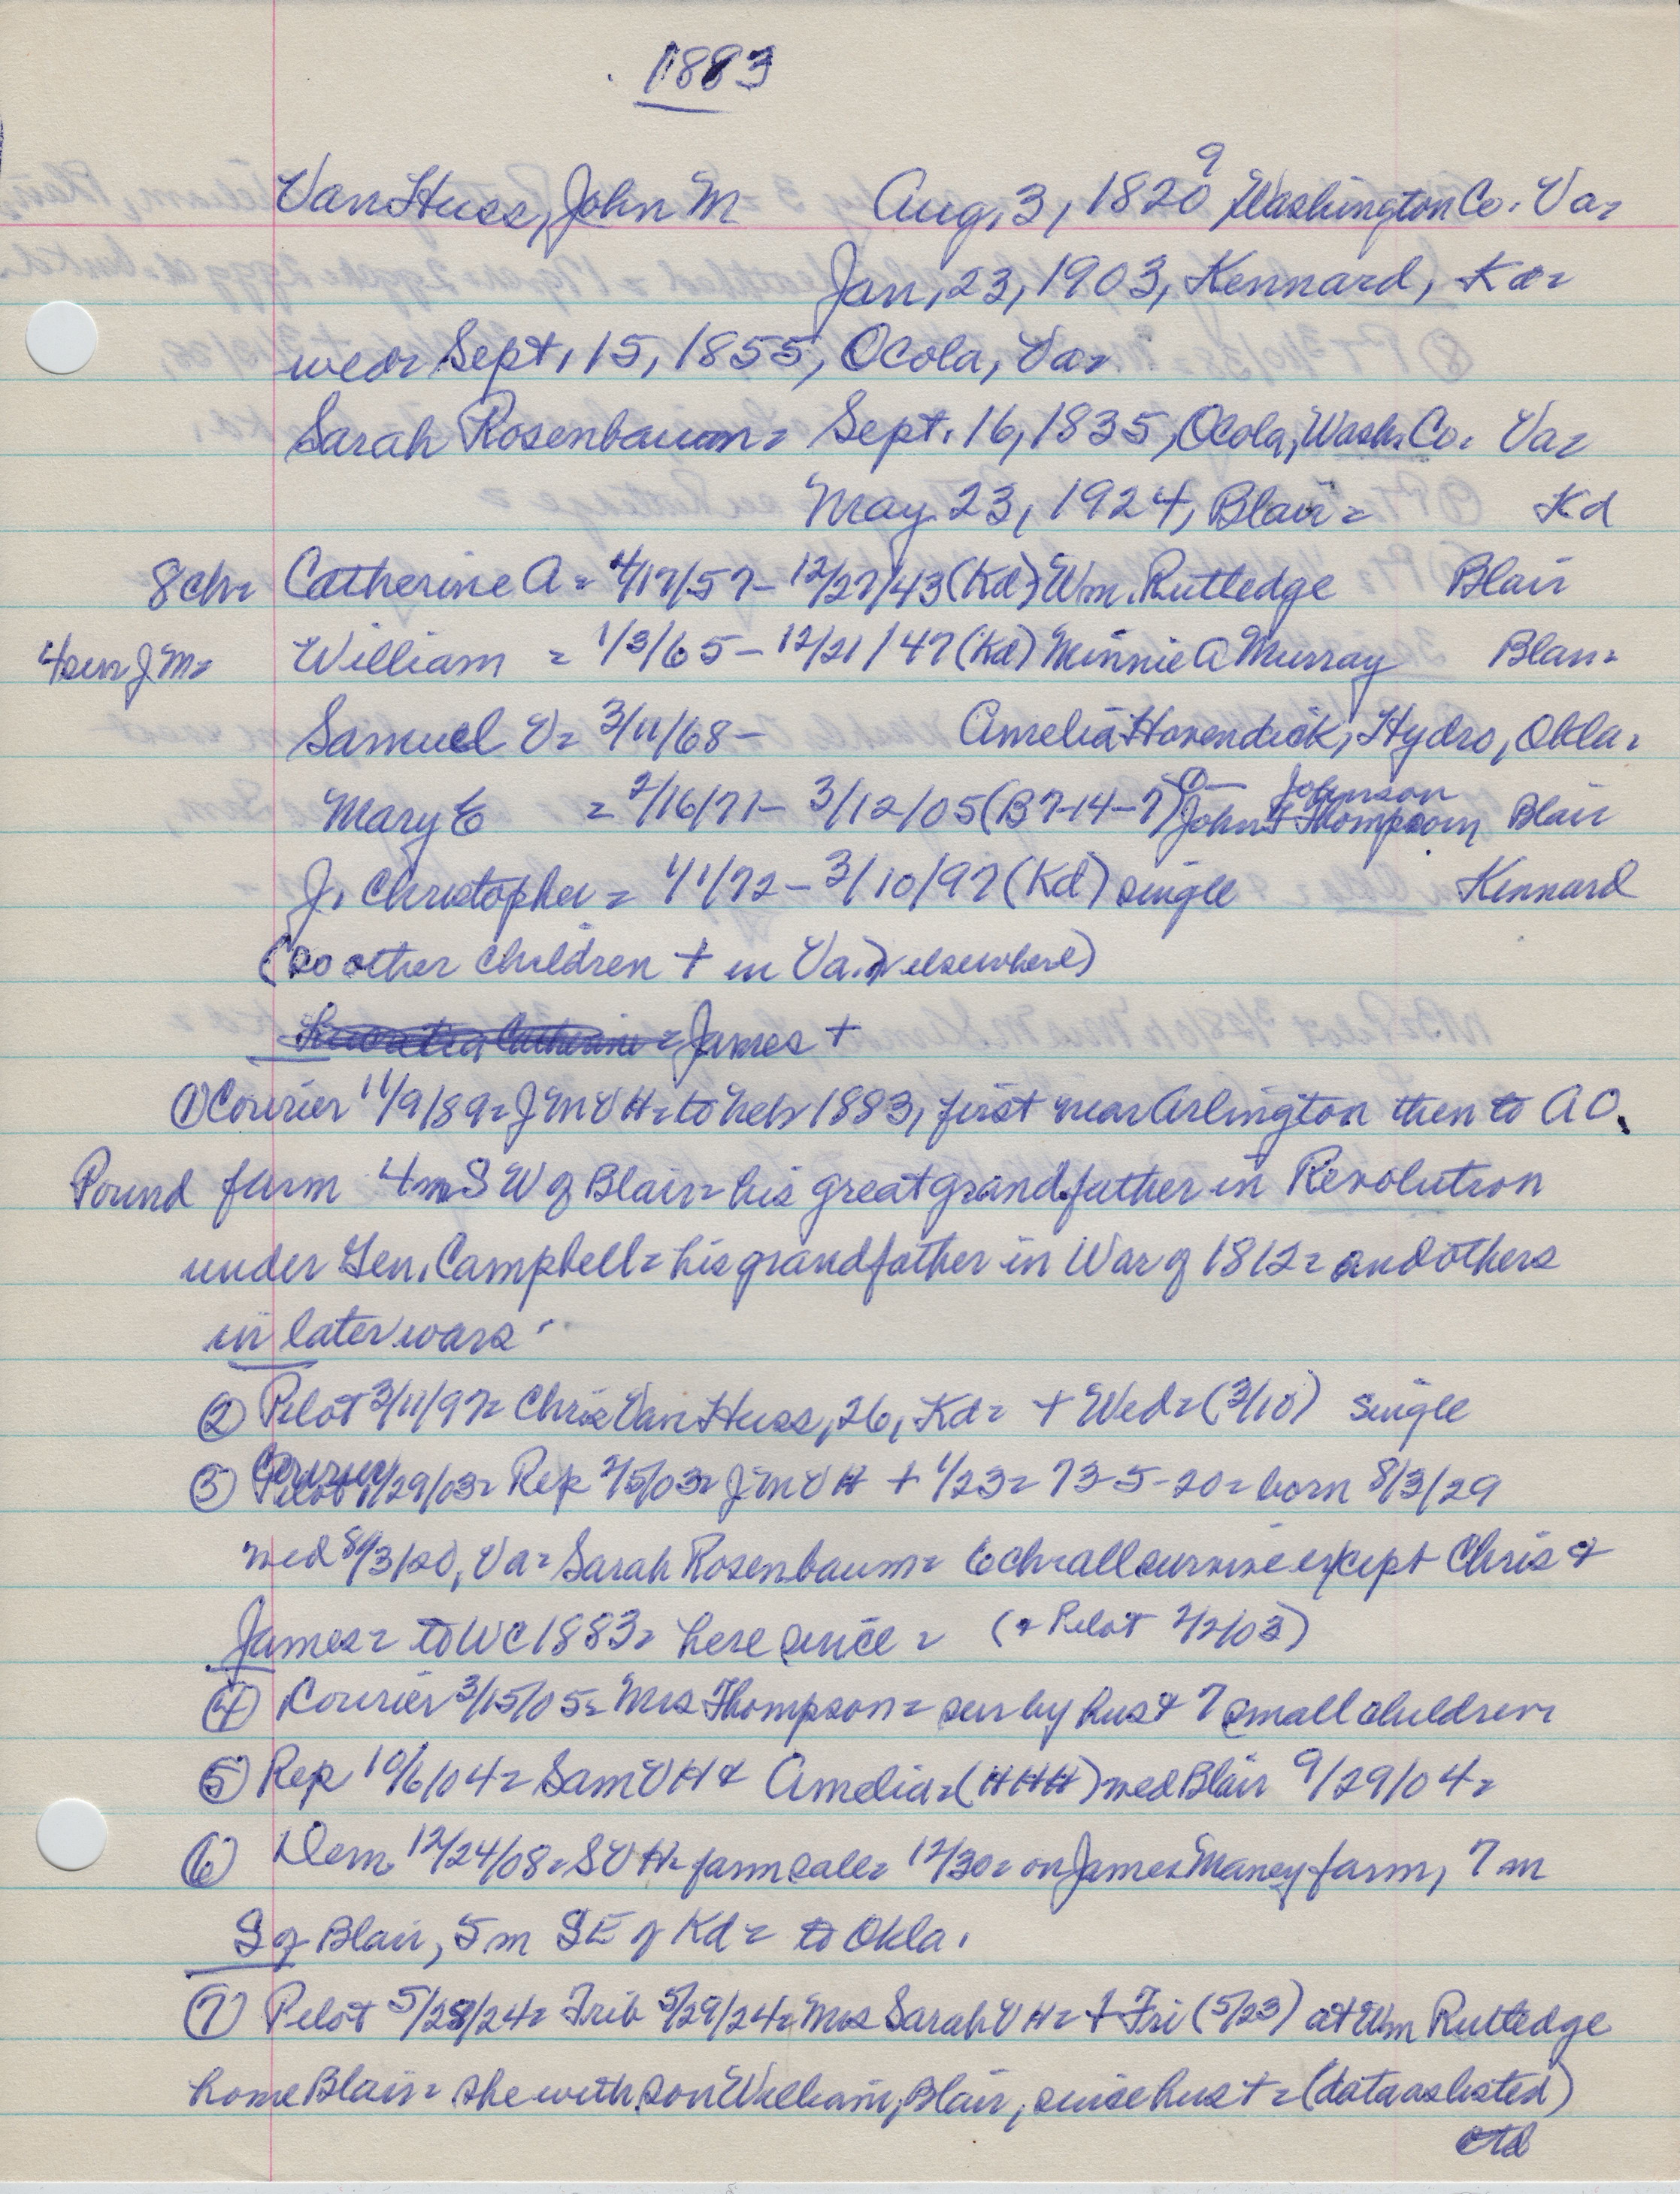 1883
VanHuss, John M Aug, 3, 1820 9, Washington Co. Va=
Jan, 23, 1903, Kennard, Kd=
wed= Sept, 15, 1855, Ocola, Va=
Sarah Rosenbaum= Sept. 16, 1835, Ocola, Wash. Co. Va=
May 23, 1924, Blair= Kd
8ch= Catherine A= 4/17/57- 12/27/43 (Kd) Wm. Rutledge Blair
4sur J M= William = 1/3/65- 12/21/47 (Kd) Minnie A Murray Blair=
Samuel V= 3/11/68- Amelia Hovendick, Hydro, Okla=
Mary E = 2/16/71- 3/12/05 (B 7-14-7) John Johnson Thompson Blair
J. Christopher= 1/1/72- 3/10/97 (Kd) single Kennard
(so other children + in Va. elsewhere)
= James +
① Courier 11/9/89= J M V H= to Neb 1883, first near Arlington then to A O.
Pound farm 4m S W of Blair= his great grandfather in Revolution
under Gen. Campbell= his grandfather in War of 1812= and others
in later wars
② Pilot 3/11/97= Chris Van Huss, 26, Kd= + Wed= (3/10) single
③ Courier 1/29/03= Rep 2/5/03= J M V H + 1/23= 73-5-20= born 8/3/29
wed Va= Sarah Rosenbaum= 6ch=all survive except Chris &
James= to WC 1883= here since= (& Pilot 2/2/03)
④ Courier 3/15/05= Mrs Thompson= sur by hus & 7 small children
⑤ Rep 10/6/04= Sam V H & Amelia= (HHH) wed Blair 9/29/04=
⑥ Dem 12/24/08= S V H= farm sale= 12/30= on James Maney farm, 7 m
S of Blair, 5 m SE of Kd= to Okla.
⑦ Pilot 5/28/24= Trib 5/29/24= Mrs Sarah V H= + Fri (5/23) at Wm Rutledge
home Blair= she with son William, Blair, since hus += (data as listed)
ctd